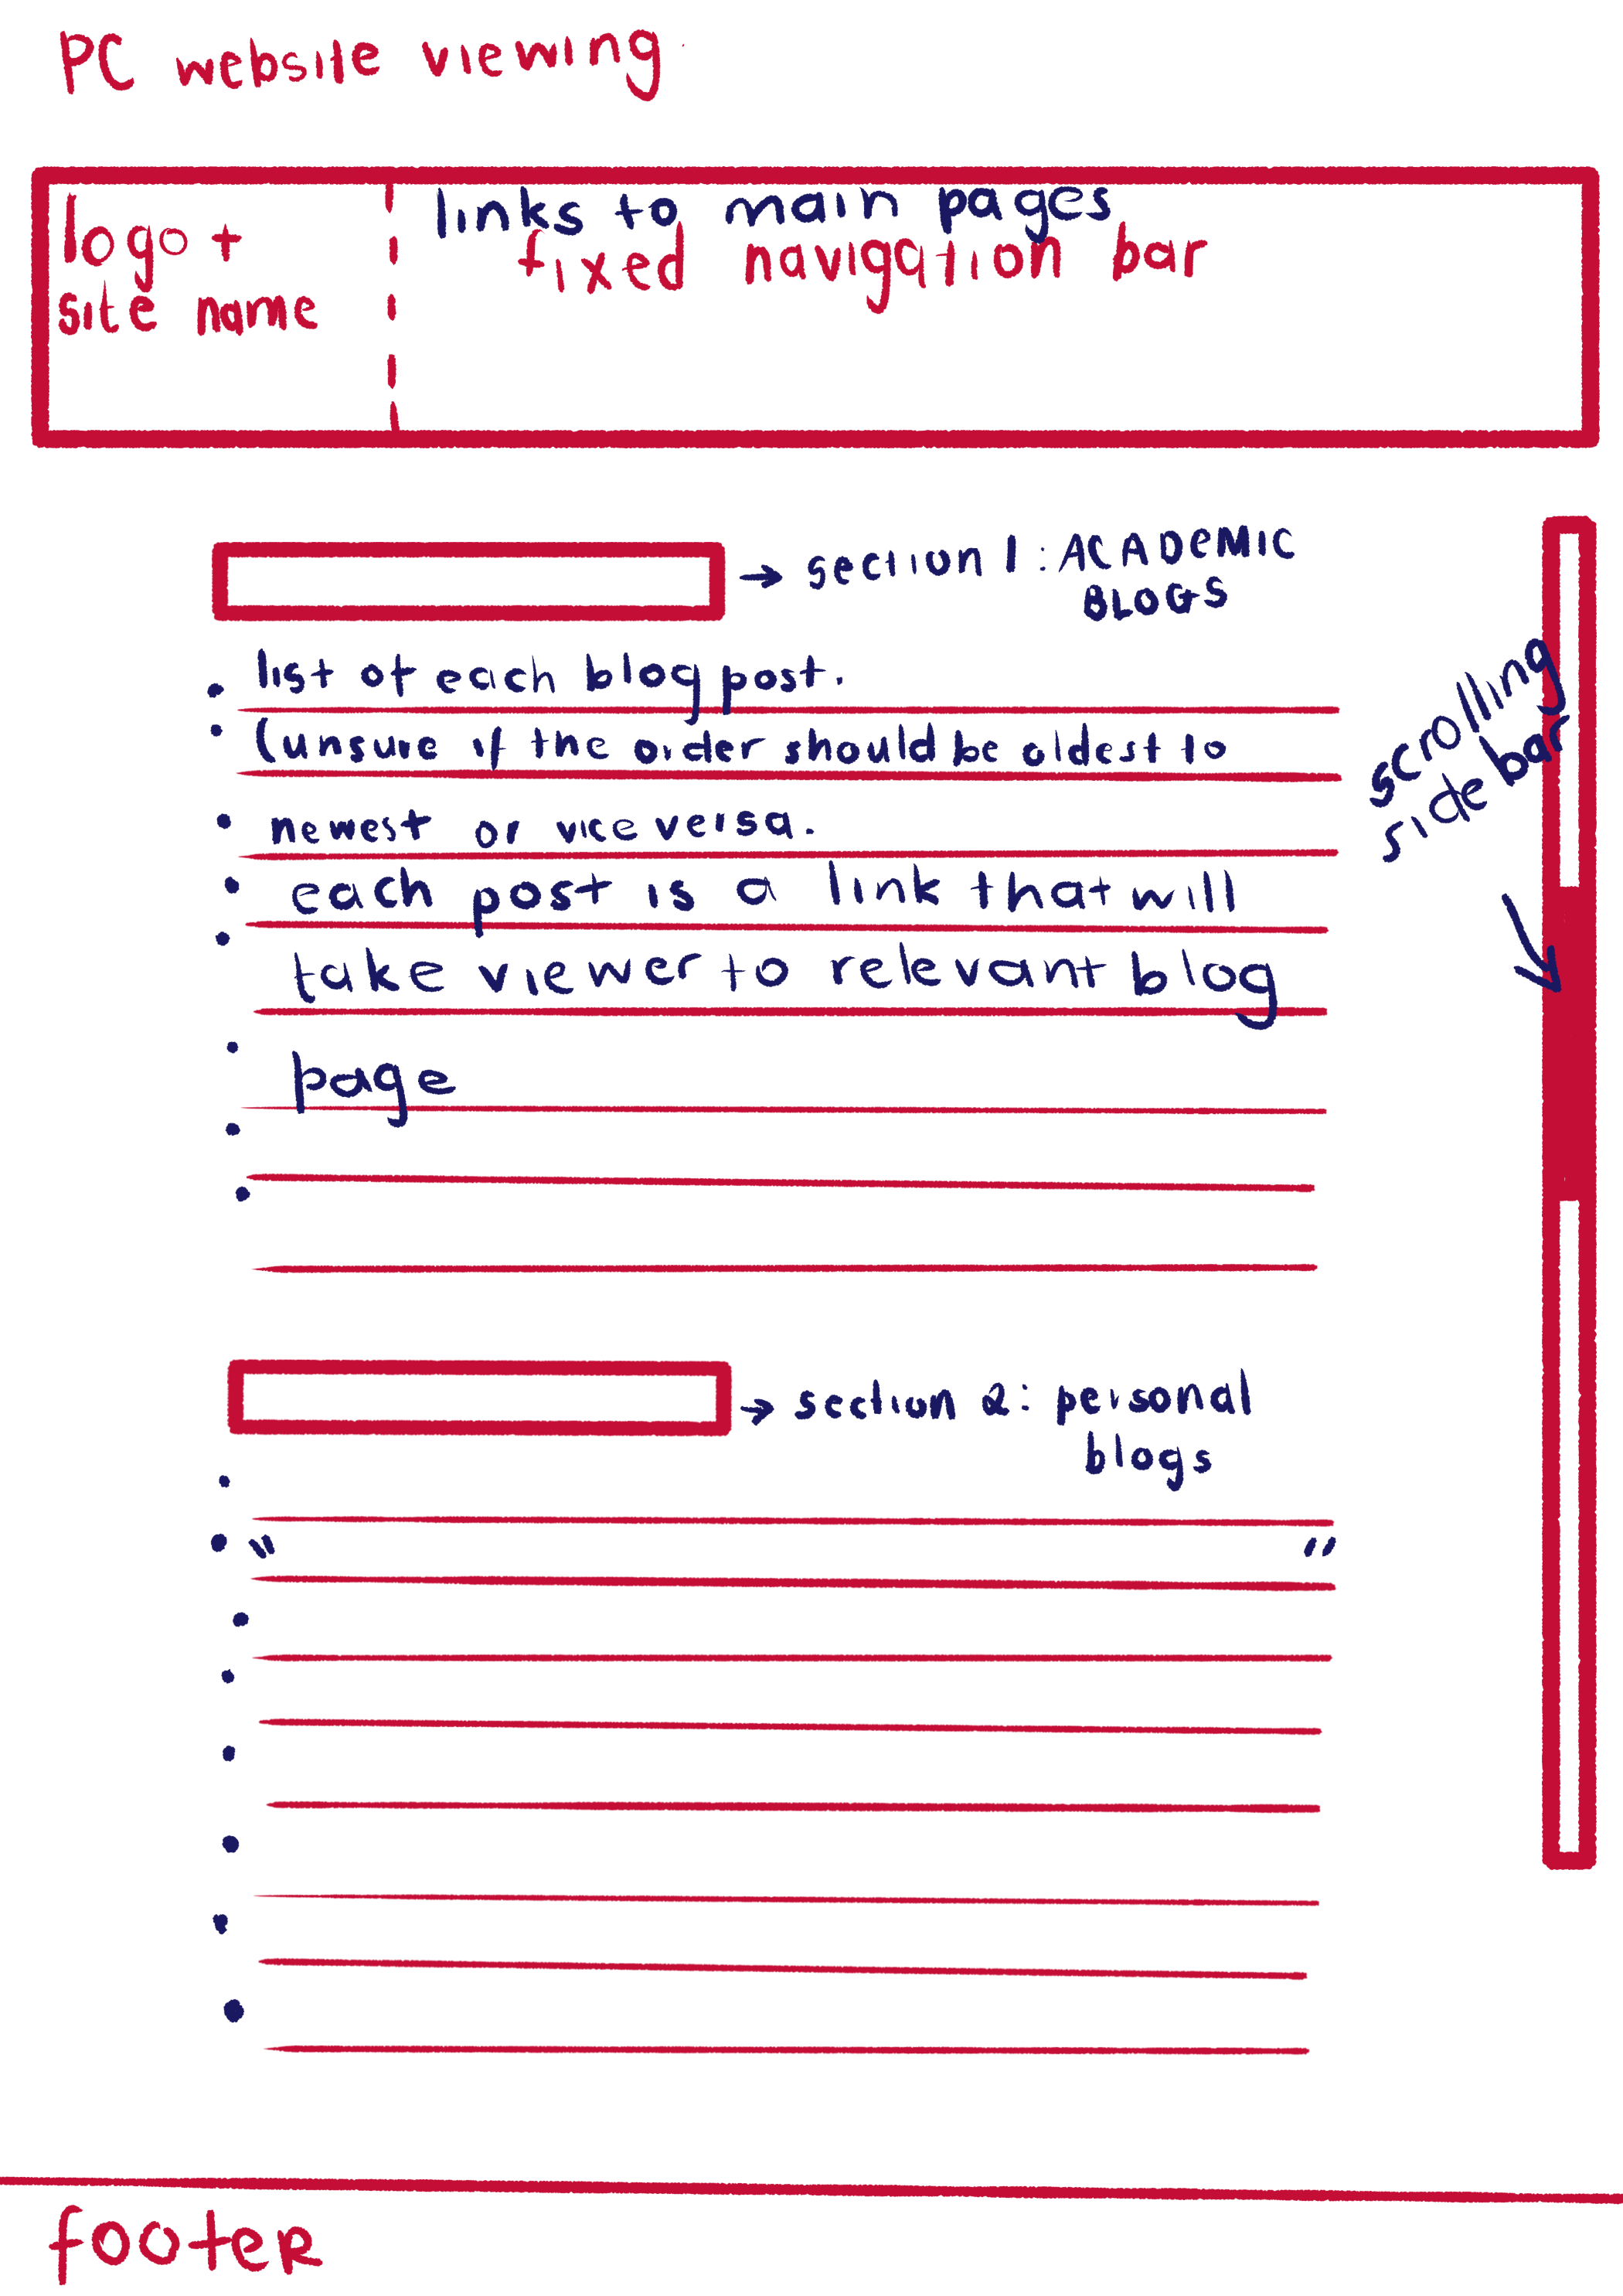 PC website viewing
logo +
site name
links to main pages
fixed navigation bar
→ section 1: ACADEMIC
BLOGS
• list of each blog post.
• (unsure if the order should be oldest to
• newest or vice versa.
• each post is a link that will
• take viewer to relevant blog
• page
scrolling
side bar
→ section 2: personal
blogs
" "
footer